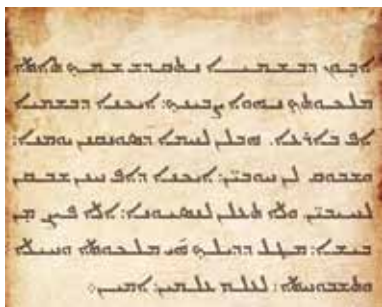 ܐܒܘܢ ܕܒܫܡܝܐ ܢܬܩܕܫ ܫܡܟ ܬܐܬܐ
ܡܠܟܘܬܟ ܢܗܘܐ ܨܒܝܢܟ: ܐܝܟܢܐ ܕܒܫܡܝܐ
ܐܦ ܒܐܪܥܐ. ܗܒ ܠܢ ܠܚܡܐ ܕܣܘܢܩܢܢ ܝܘܡܢܐ:
ܘܫܒܘܩ ܠܢ ܚܘܒܝܢ: ܐܝܟܢܐ ܕܐܦ ܚܢܢ ܫܒܩܢ
ܠܚܝܒܝܢ: ܘܠܐ ܬܥܠܢ ܠܢܣܝܘܢܐ: ܐܠܐ ܦܨܢ ܡܢ
ܒܝܫܐ: ܡܛܠ ܕܕܝܠܟ ܗܝ ܡܠܟܘܬܐ ܘܚܝܠܐ
ܘܬܫܒܘܚܬܐ: ܠܥܠܡ ܥܠܡܝܢ: ܐܡܝܢ܀